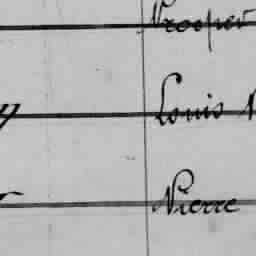 Prosper
Louis
Pierre